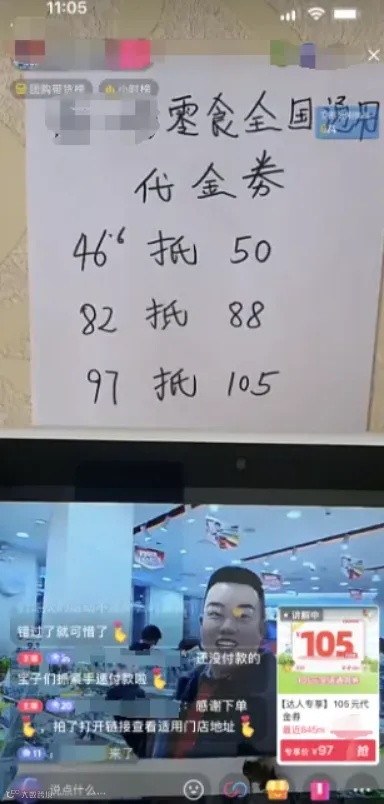 11:05
团购带货榜
小时榜
零食全国通用
代金券
46.6 抵 50
82 抵 88
97 抵 105
错过了就可惜了
还没付款的
宝子们抓紧手速付款啦
：感谢下单
，拍了打开链接查看适用门店地址
来了
说点什么...
讲解中
105
【达人专享】105元代金券
最近845m
专享价 ¥97 抢